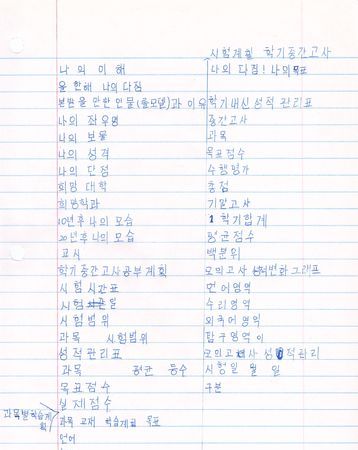 나의 이해
올한해 나의 다짐
본받을 만한 인물(롤모델)과 이유
나의 좌우명
나의 보물
나의 성격
나의 단점
희망 대학
희망학과
10년후 나의 모습
20년후 나의 모습
교시
학기중간고사공부 계획
시험 시간표
시험 일
시험범위
과목 시험범위
성적관리표
과목 평균 등수
목표점수
실제점수
과목별학습계획
과목 교재 학습계획 목표
언어
시험계획 학기중간고사
나의 다짐! 나의목표
학기내신성적 관리표
중간고사
과목
목표점수
수행평가
총점
기말고사
1 학기합계
평균점수
백분위
모의고사 성적변화그래프
언어영역
수리영역
외국어영역
탐구영역
모의고사 성적관리
시험일 월 일
구분